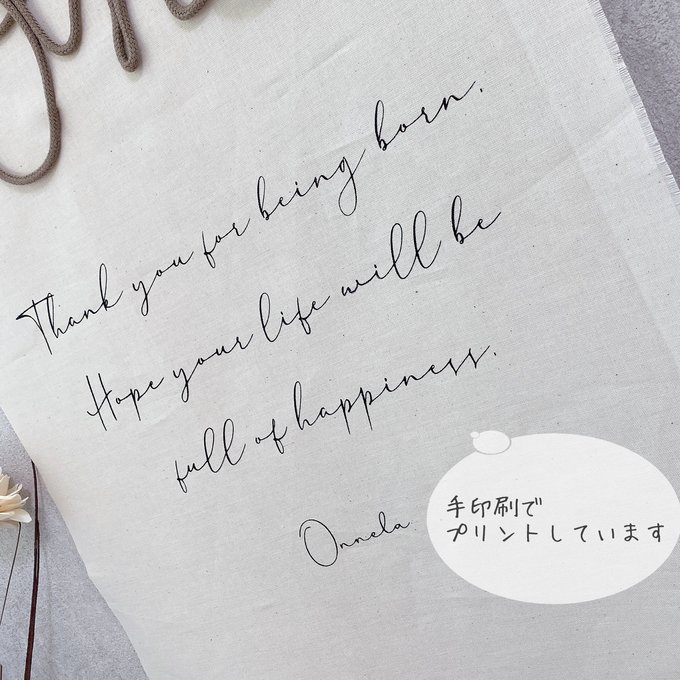 Thank you for being born.
Hope your life will be
full of happiness.
Onnela
手印刷で
プリントしています